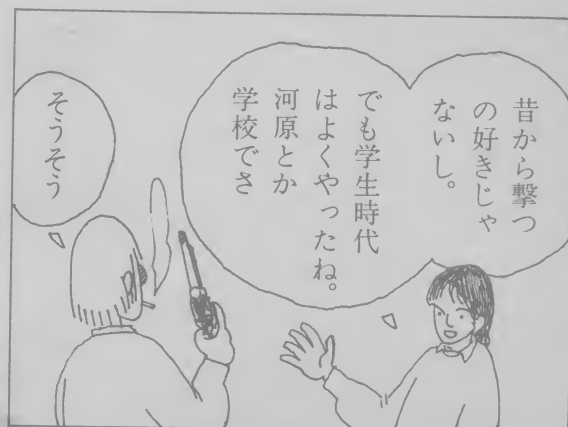 昔から撃つ
の好きじゃ
ないし。
でも学生時代
はよくやったね。
河原とか
学校でさ
そうそう